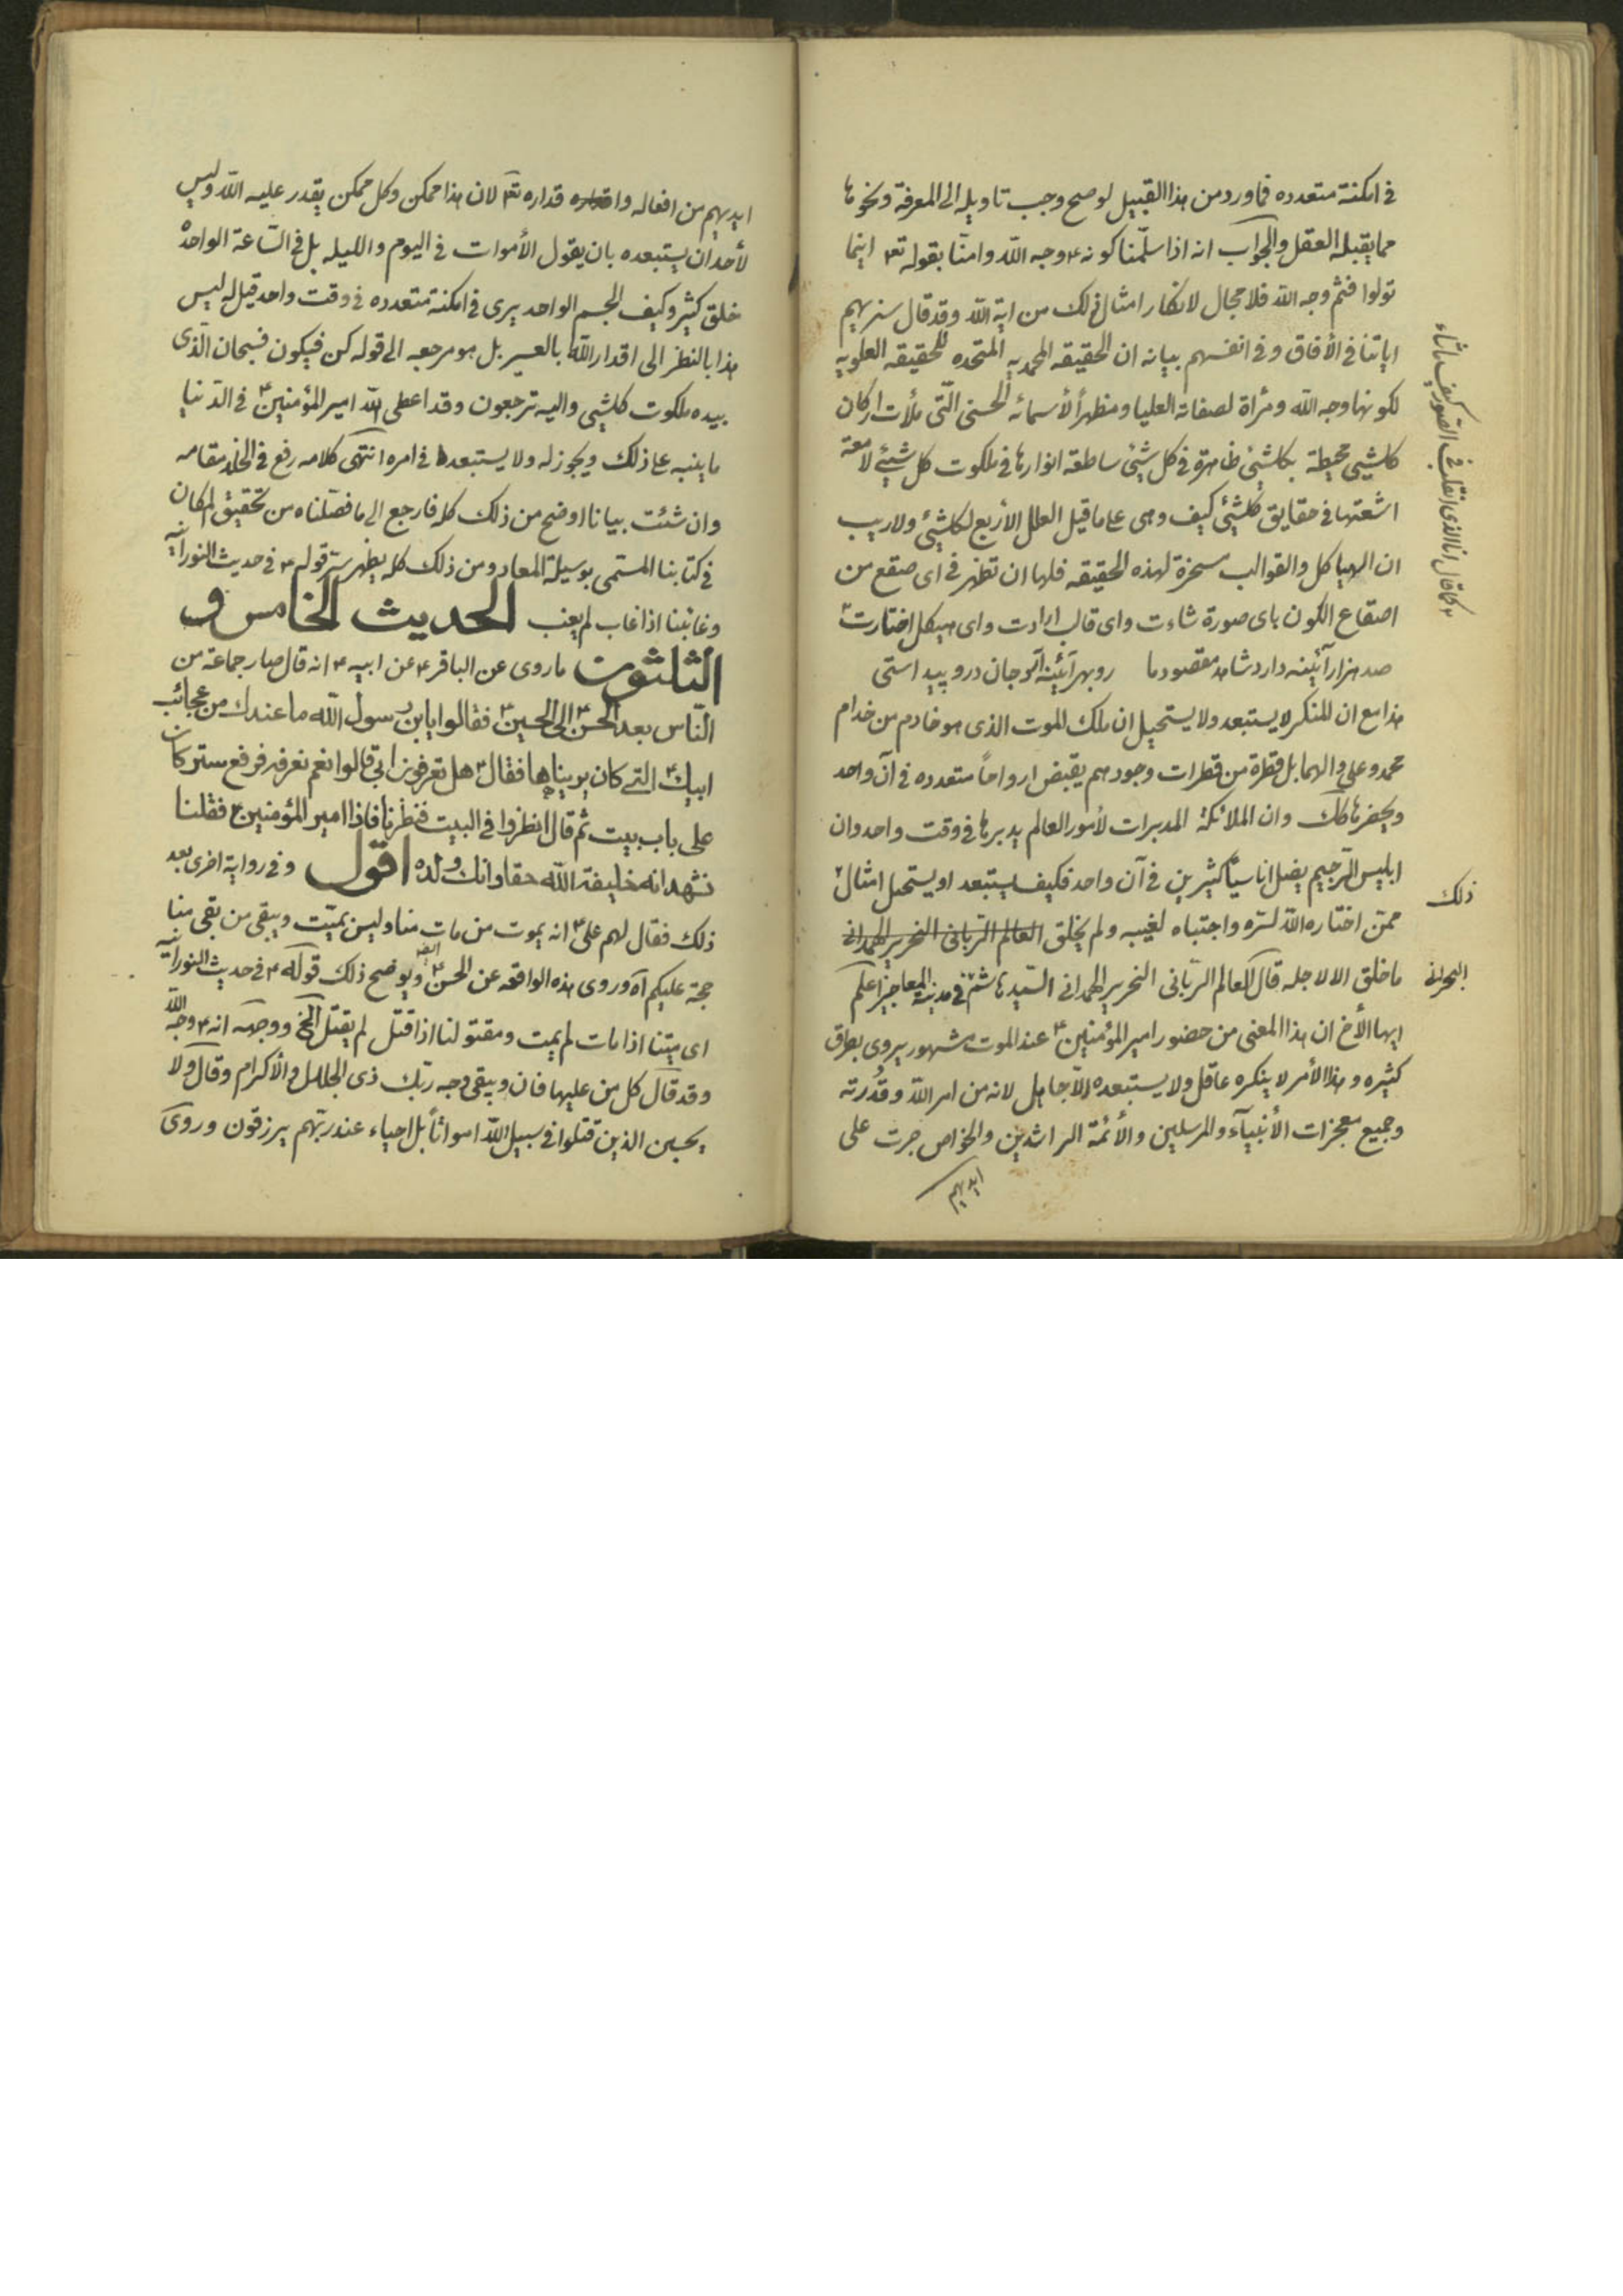 فی امکنة متعدده فما ورد من هذا القبیل لو صح وجب تاویله الی المعرفة ونحوها
مما یقبله العقل والجواب انه اذا سلّمنا کونه ۴ وجه اللّه وامنّا بقوله تع۴ اینما
تولوا فثم وجه اللّه فلا مجال لانکار امثال ذلک من ایة اللّه وقد قال سنریهم
ایاتنا فی الأفاق وفی انفسهم بیانه ان الحقیقه المحمدیه المتحده للحقیقه العلویه
لکونها وجه اللّه ومرأة لصفاته العلیا ومظهراً لأسمائه الحسنی الّتی ملأت ارکان
کلشیی محیطة بکلشیئ ظاهرة فی کل شیئ ساطعة انوارها فی ملکوت کل شیئ لامعة
اشعتها فی حقایق کلشیئ کیف وهی علی ما قیل العلل الأربع لکلشیئ ولا ریب
ان الهیاکل والقوالب مسخرة لهذه الحقیقه فلها ان تظهر فی ای صقع من
اصقاع الکون بای صورة شاءت وای قالب ارادت وای هیکل اختارت
کما قال انا الذی اتقلب فی الصور کیف ما شاء
صد هزار آئینه دارد شاهد مقصود ما روبهر آئینه آرد جان درو پیدا ستی
هذا مع ان المنکر لا یستبعد ولا یستحیل ان ملک الموت الذی هو خادم من خدام
محمد وعلی والهما بل قطرة من قطرات وجودهم یقبض ارواحاً متعدده فی آن واحد
ویحضرها کک وان الملائکة المدبرات لأمور العالم یدبرها فی وقت واحد وان
ابلیس الرّجیم یضل اناسیاً کثیرین فی آن واحد فکیف یستبعد او یستحیل امثال
ذلک
ممّن اختاره اللّه لسرّه واجتباه لغیبه ولم یخلق العالم الربانی النحریر الهمدانی
ما خلق الا لاجله قال العالم الربّانی النحریر الهمدانی السّید هاشم فی مدینة المعاجز اعلم
البحرانی
ایها الأخ ان هذا المعنی من حضور امیر المؤمنین ۴ عند الموت مشهور یروی بطرق
کثیره وهذا الأمر لا ینکره عاقل ولا یستبعده الّا جاهل لانه من امر اللّه وقدرته
وجمیع معجزات الأنبیآء والمرسلین والأئمّة الراشدین والخواص جرت علی
ایدیهم
ایدیهم من افعاله واقداره تع۴ لان هذا ممکن وکل ممکن یقدر علیه اللّه ولیس
لأحد ان یستبعده بان یقول الأموات فی الیوم واللیله بل فی السّاعة الواحدة
خلق کثیر وکیف الجسم الواحد یری فی امکنة متعدده فی وقت واحد قیل له لیس
هذا بالنظر الی اقدار اللّه بالعسیر بل هو مرجعه الی قوله کن فیکون فسبحان الّذی
بیده ملکوت کلشیی والیه ترجعون وقد اعطی اللّه امیر المؤمنین ۴ فی الدّنیا
ما ینبه علی ذلک ویجوز له ولا یستبعد فی امره انتهی کلامه رفع فی الخلد مقامه
وان شئت بیانا اوضح من ذلک کله فارجع الی ما فصّلناه من تحقیق المکان
فی کتابنا المسمّی بوسیلة المعاد ومن ذلک کله یظهر سرّ قوله ۴ فی حدیث النورانیه
وغائبنا اذا غاب لم یغب الحدیث الخامس و
الثلثون ما روی عن الباقر ۴ عن ابیه ۴ انه قال صار جماعة من
النّاس بعد الحسن ۴ الی الحسین ۴ فقالوا یابن رسول اللّه ما عندک من عجائب
ابیک ۴ التی کان یریناها فقال ۴ هل تعرفون ابی قالوا نعم نعرفه فرفع ستر کان
علی باب بیت ثم قال انظروا فی البیت فنظرنا فاذا امیر المؤمنین ۴ فقلنا
نشهد انه خلیفة اللّه حقا وانک ولده اقول وفی روایة اخری بعد
ذلک فقال لهم علی ۴ انه یموت من مات منا ولیس بمیّت ویبقی من بقی منا
حجة علیکم آه وروی هذه الواقعه عن الحسن ۴ ایضه ویوضح ذلک قوله ۴ فی حدیث النورانیه
ای میتنا اذا مات لم یمت ومقتولنا اذا قتل لم یقتل الخ ووجهه انه ۴ وجه اللّه
وقد قال کل من علیها فان ویبقی وجه ربّک ذی الجلال والأکرام وقال ولا
یحسبن الذین قتلوا فی سبیل اللّه امواتاً بل احیاء عند ربّهم یرزقون وروی